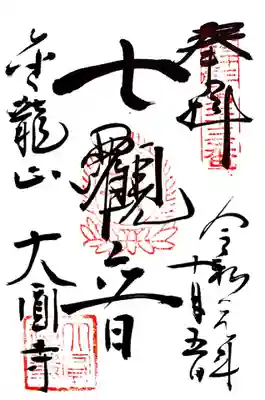 奉拝
令和六年
十月五日
七觀音
金龍山
大圓寺